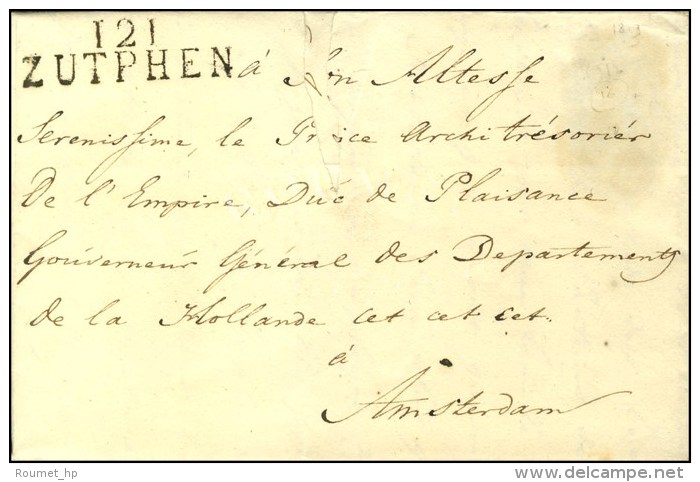 121
ZUTPHEN
à Son Altesse
Serenissime, le Prince Architrésoriér
De l'Empire, Duc de Plaisance
Gouverneur Général des Departements
de la Hollande cet cet cet.
à
Amsterdam
1813
Roumet_hp
delcampe.net